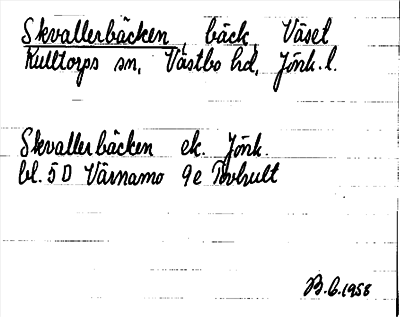 Skvallerbäcken, bäck, Väset
Kulltorps sn, Västbo hd, Jönk. l.
Skvallerbäcken ek. Jönk.
bl. 5D Värnamo 9e
B.G. 1958